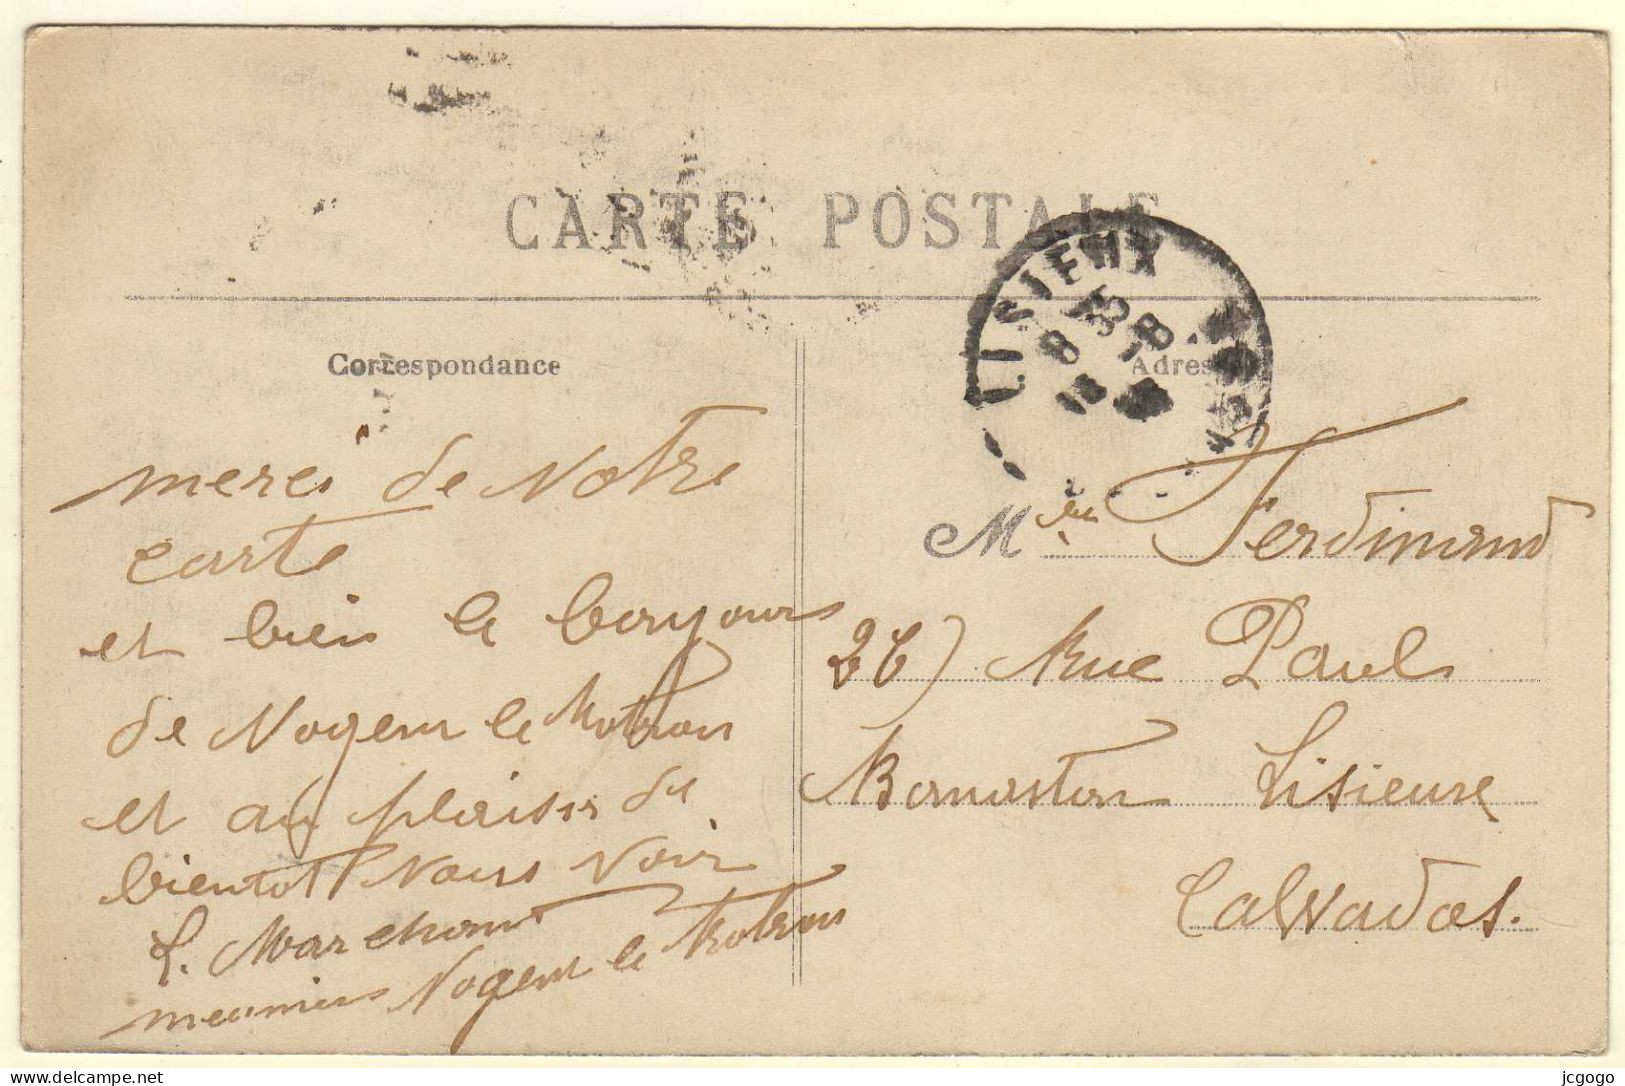 CARTE POSTALE
LISIEUX
Correspondance
Adresse
merci de Notre
carte
et bien le bonjours
de Nogent le Rotrou
et au plaisir de
bientot Nous Voir
L. Marchand
meuniers Nogent le Rotrou
M Ferdinand
26) Rue Paul
Banaston Lisieux
Calvados.
delcampe.net
jcgogo